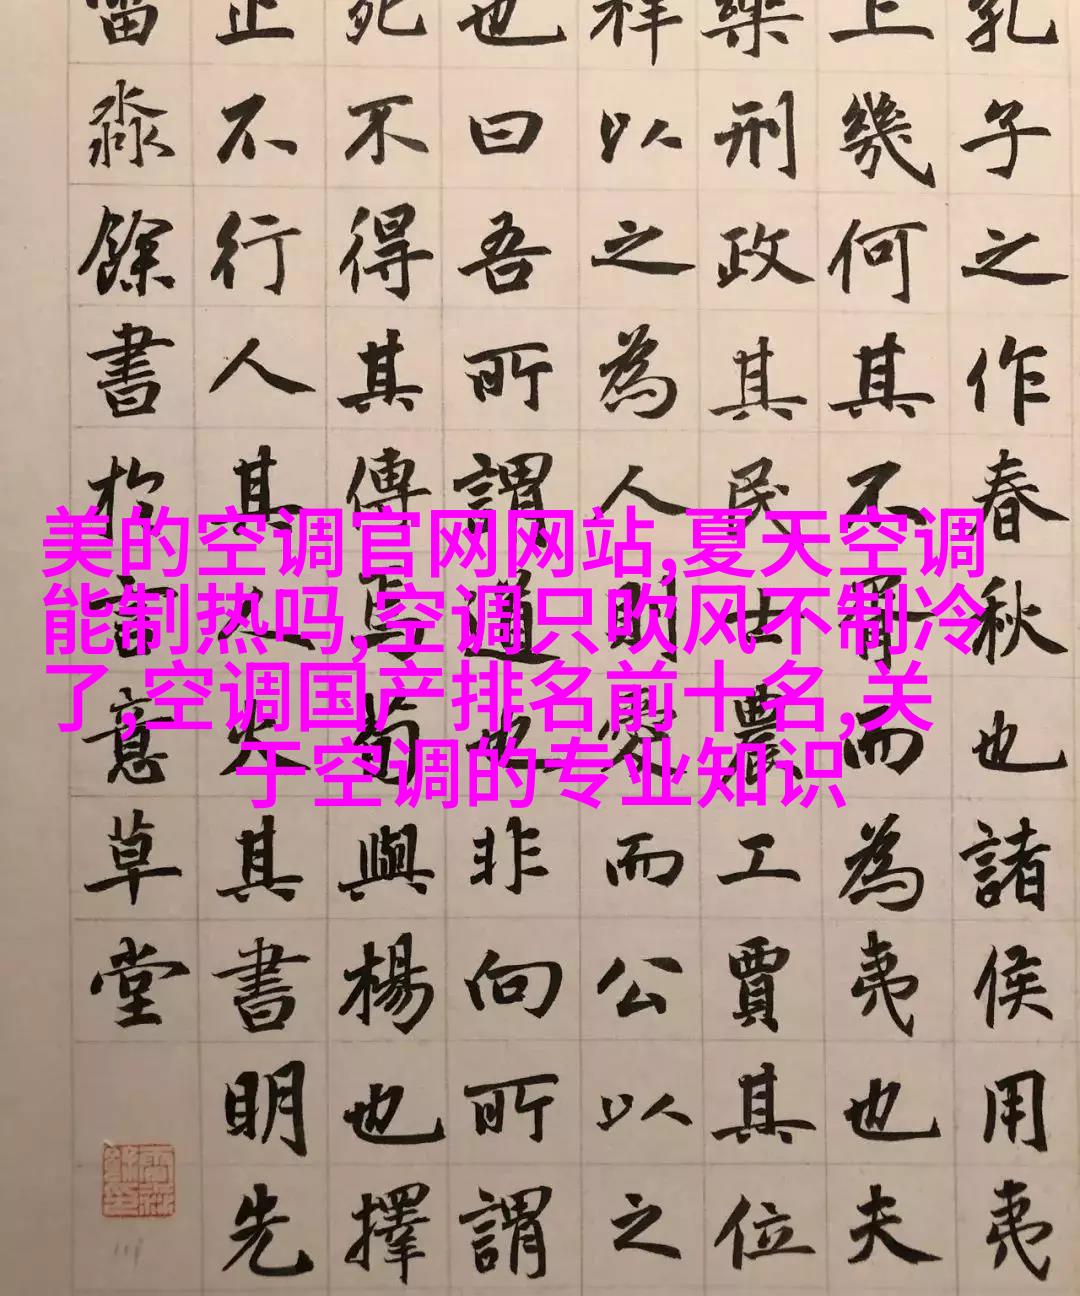 孔子之作春秋也諸侯用夷
上幾何其不胥而為夷也夫
樂刑政其民士農工賈其位
祥以之為人則愛而公以之
也曰吾所謂道也非向所謂
死不得其傳焉荀與楊也擇
止不行人其人火其書明先
淼餘書於意草堂
美的空调官网网站,夏天空调
能制热吗,空调只吹风不制冷
了,空调国产排名前十名,关
于空调的专业知识